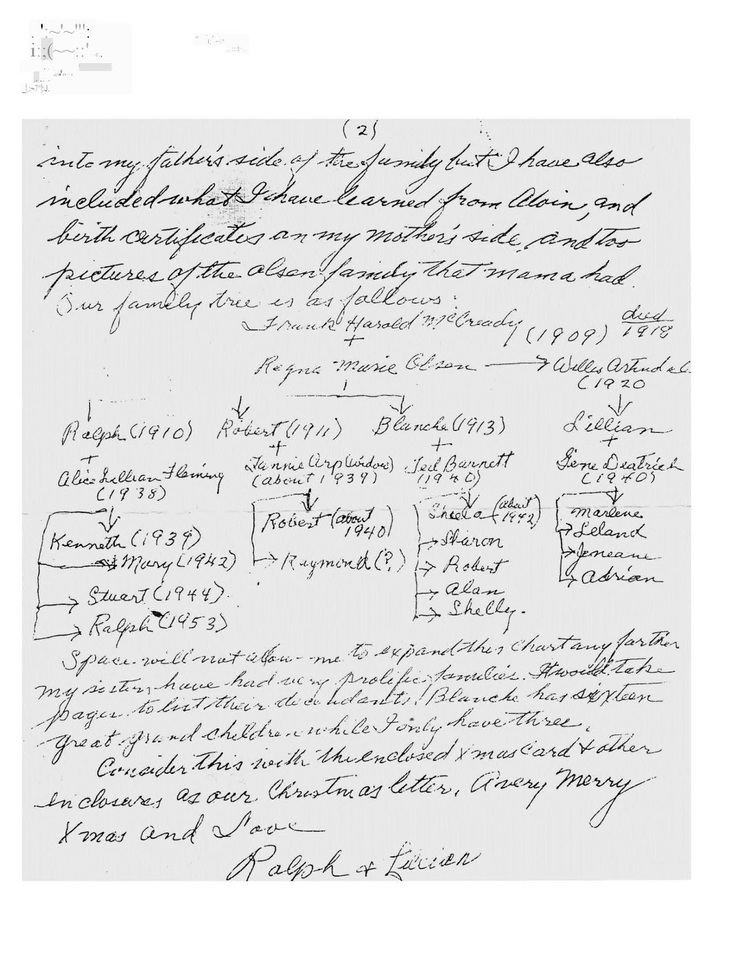 (2)
into my father's side of the family but I have also
included what I have learned from Alvin, and
birth certificates on my mother's side, and too
pictures of the Olsen family that mama had.
Our family tree is as follows:
Frank Harold McCready (1909) died 1918
+
Regna Marie Olsen → Willis
(1920
Ralph (1910) Robert (1911) Blanche (1913) Lillian
+ + + +
Alice Lillian Fleming Fannie Arp (widow) Ted Barnett Gene Deatrich
(1938) (about 1939) (1940) (1940)
Kenneth (1939) Robert (about 1940) Sheela (about 1942) Marlene
Mary (1942) Raymond (?) Sharon Leland
Stuart (1944) Robert Jeneane
Ralph (1953) Alan Adrian
Shelly.
Space will not allow me to expand this chart any farther
my sisters have had very prolific families. It would take
pages to list their decendants! Blanche has sixteen
great grand children while I only have three.
Consider this with the enclosed Xmas card & other
enclosures as our Christmas letter. A very Merry
Xmas and Love
Ralph &